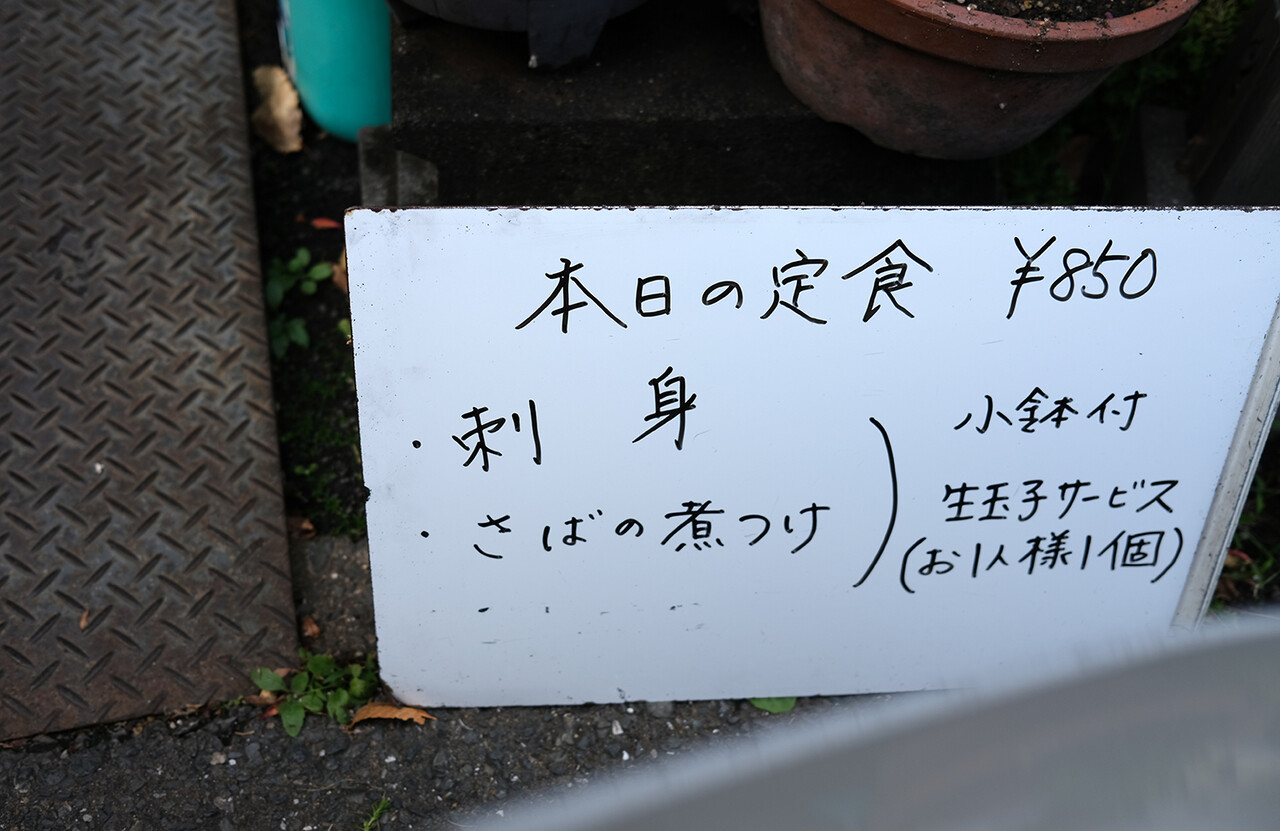 本日の定食 ¥850
・刺身
・さばの煮つけ
小鉢付
生玉子サービス
(お1人様1個)